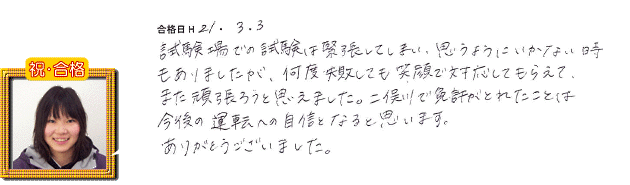 合格日 H 21. 3. 3
試験場での試験は緊張してしまい、思うようにいかない時
もありましたが、何度失敗しても笑顔で対応してもらえて、
また頑張ろうと思えました。二俣川で免許がとれたことは
今後の運転への自信となると思います。
ありがとうございました。
祝・合格